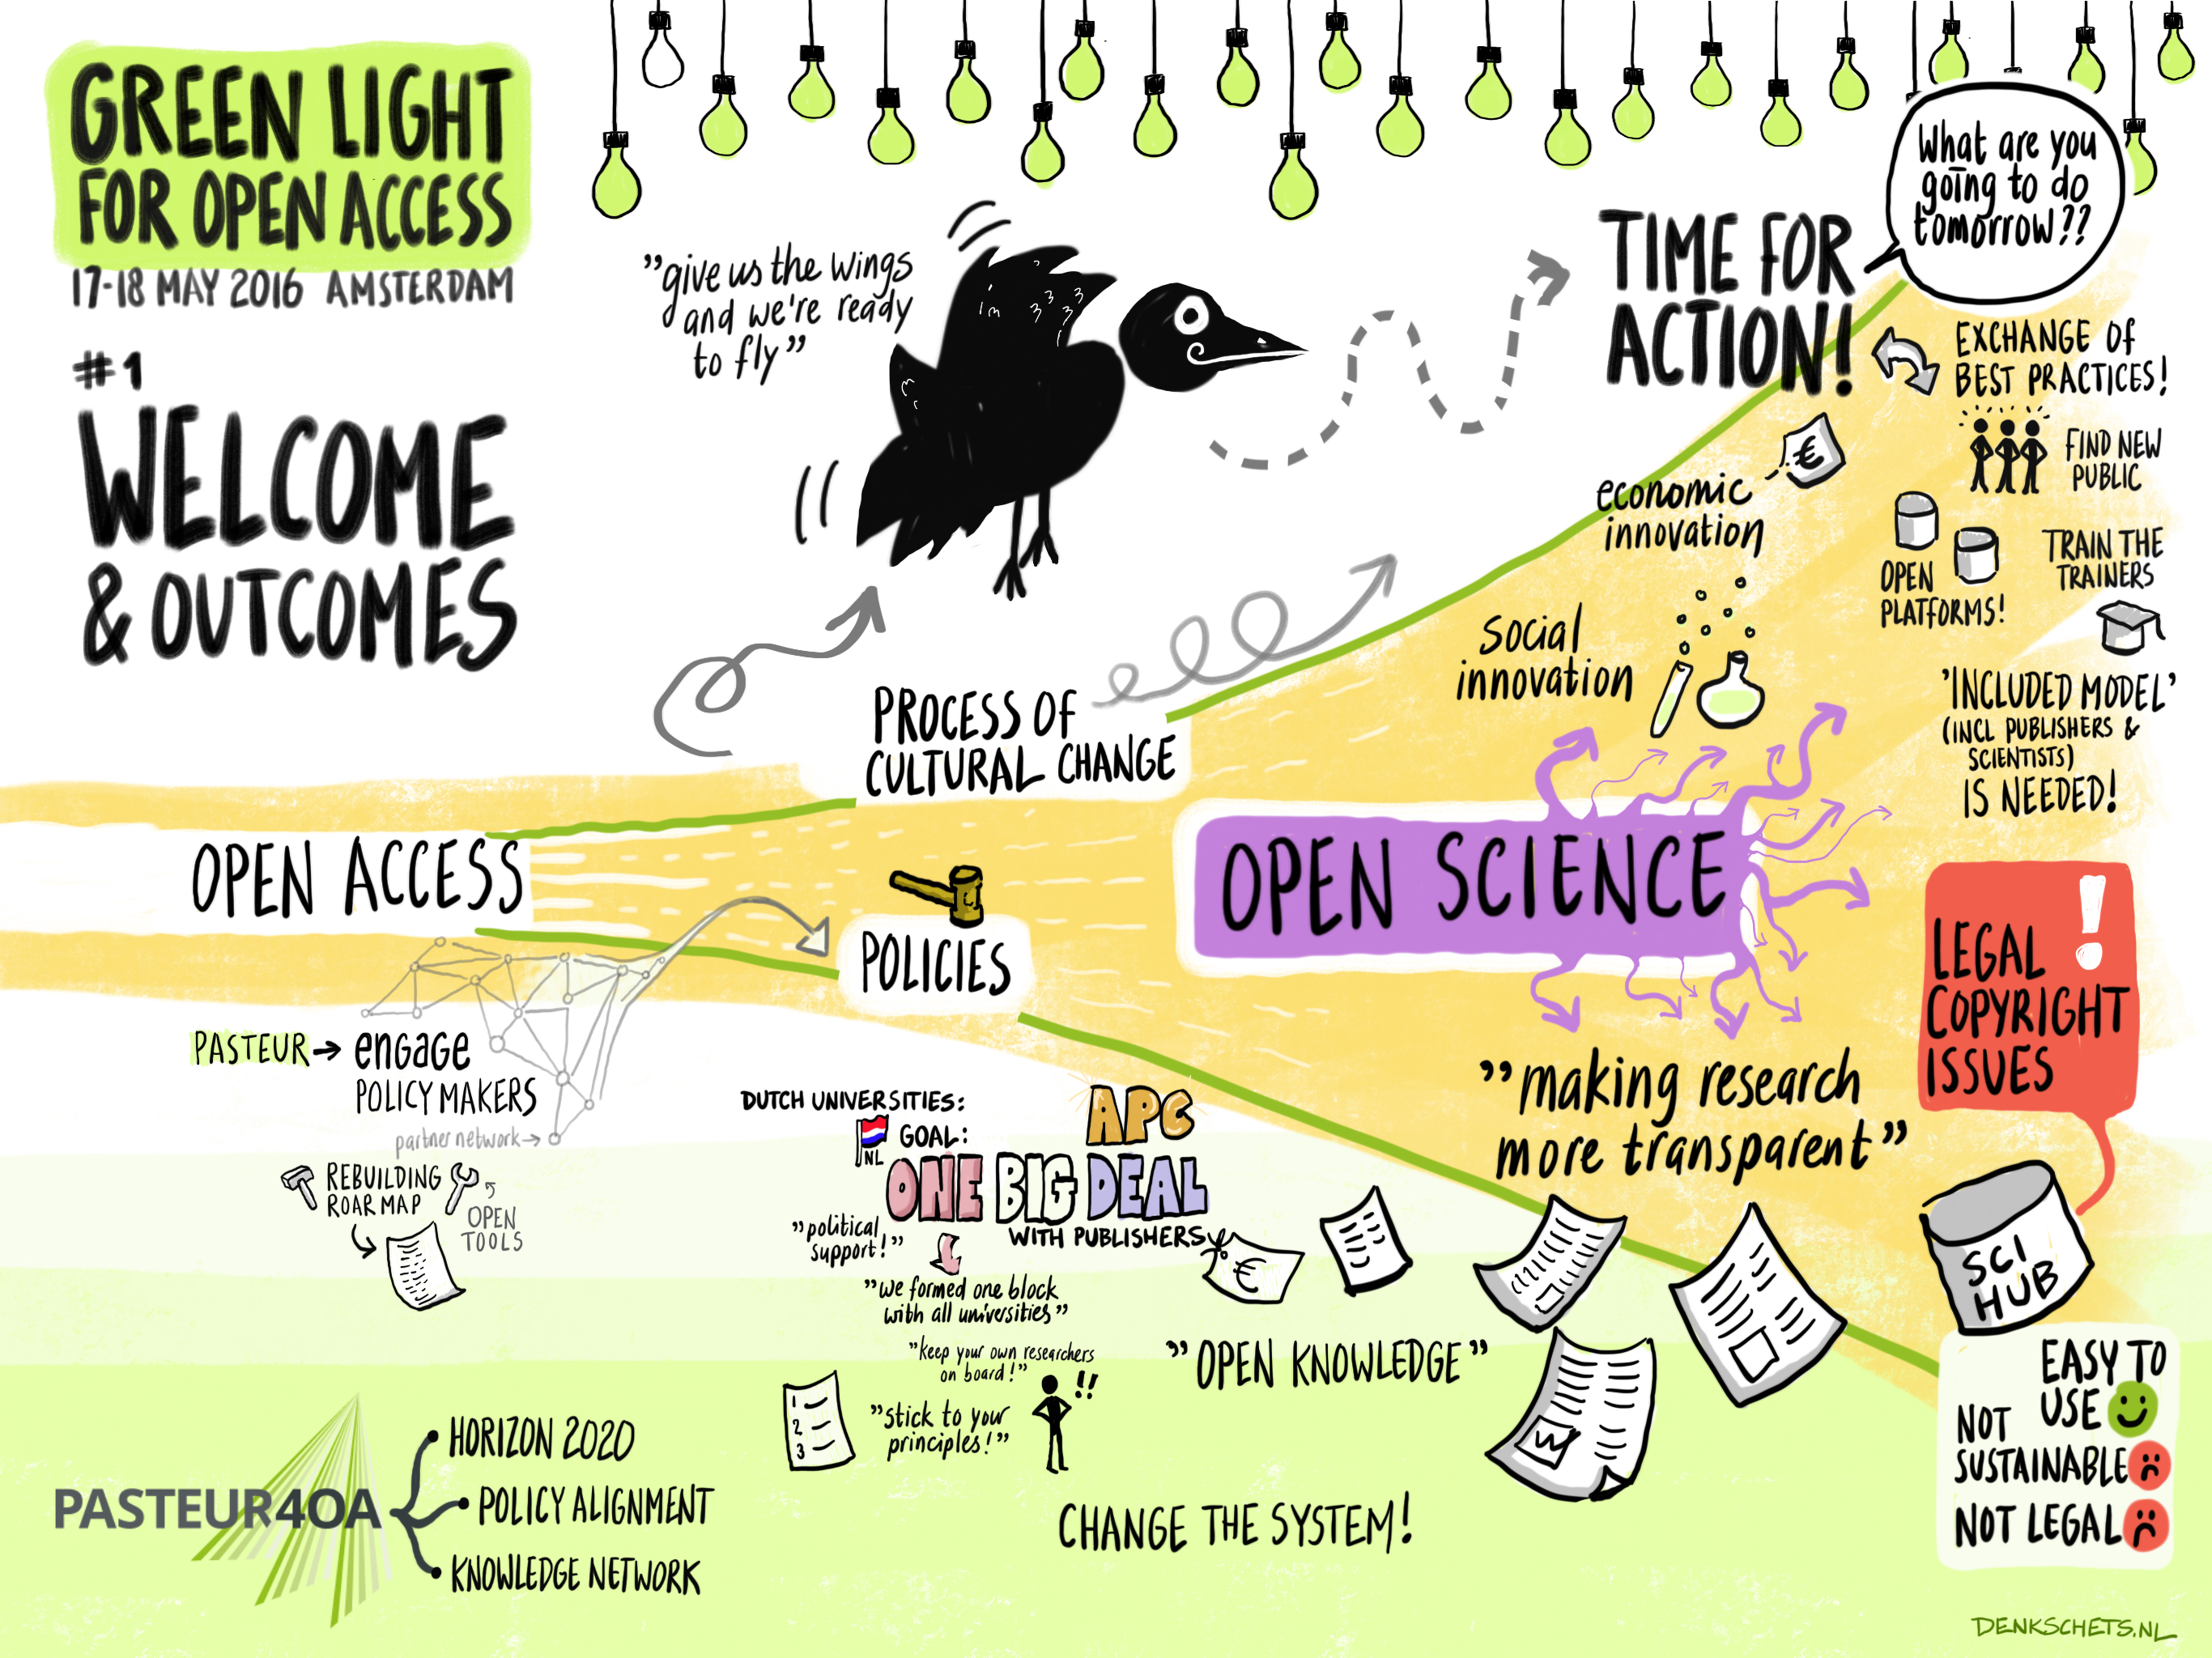 GREEN LIGHT
FOR OPEN ACCESS
17-18 MAY 2016 AMSTERDAM
#1
WELCOME
& OUTCOMES
"give us the wings
and we're ready
to fly"
TIME FOR
ACTION!
What are you
going to do
tomorrow??
EXCHANGE OF
BEST PRACTICES!
FIND NEW
PUBLIC
€
economic
innovation
OPEN
PLATFORMS!
TRAIN THE
TRAINERS
social
innovation
'INCLUDED MODEL'
(INCL PUBLISHERS &
SCIENTISTS)
IS NEEDED!
PROCESS OF
CULTURAL CHANGE
OPEN ACCESS
POLICIES
OPEN SCIENCE
LEGAL !
COPYRIGHT
ISSUES
"making research
more transparent"
PASTEUR → engage
POLICY MAKERS
partner network →
REBUILDING
ROARMAP
OPEN
TOOLS
DUTCH UNIVERSITIES:
NL
GOAL:
APC
ONE BIG DEAL
WITH PUBLISHERS
€
"political
support!"
"we formed one block
with all universities"
"keep your own researchers
on board!"
!!
1
2
3
"stick to your
principles!"
"OPEN KNOWLEDGE"
W
CHANGE THE SYSTEM!
SCI
HUB
EASY TO
USE
NOT
SUSTAINABLE
NOT LEGAL
PASTEUR4OA
HORIZON 2020
POLICY ALIGNMENT
KNOWLEDGE NETWORK
DENKSCHETS.NL